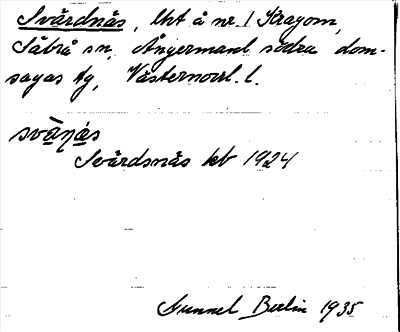 Svärdnäs, lht å nr 1 Kragom,
Säbrå sn, Ångermanl södra dom-
sagas tg, Västernorrl. l.
svàṇás
Svärdsnäs kb 1924
Gunnel Berlin 1935